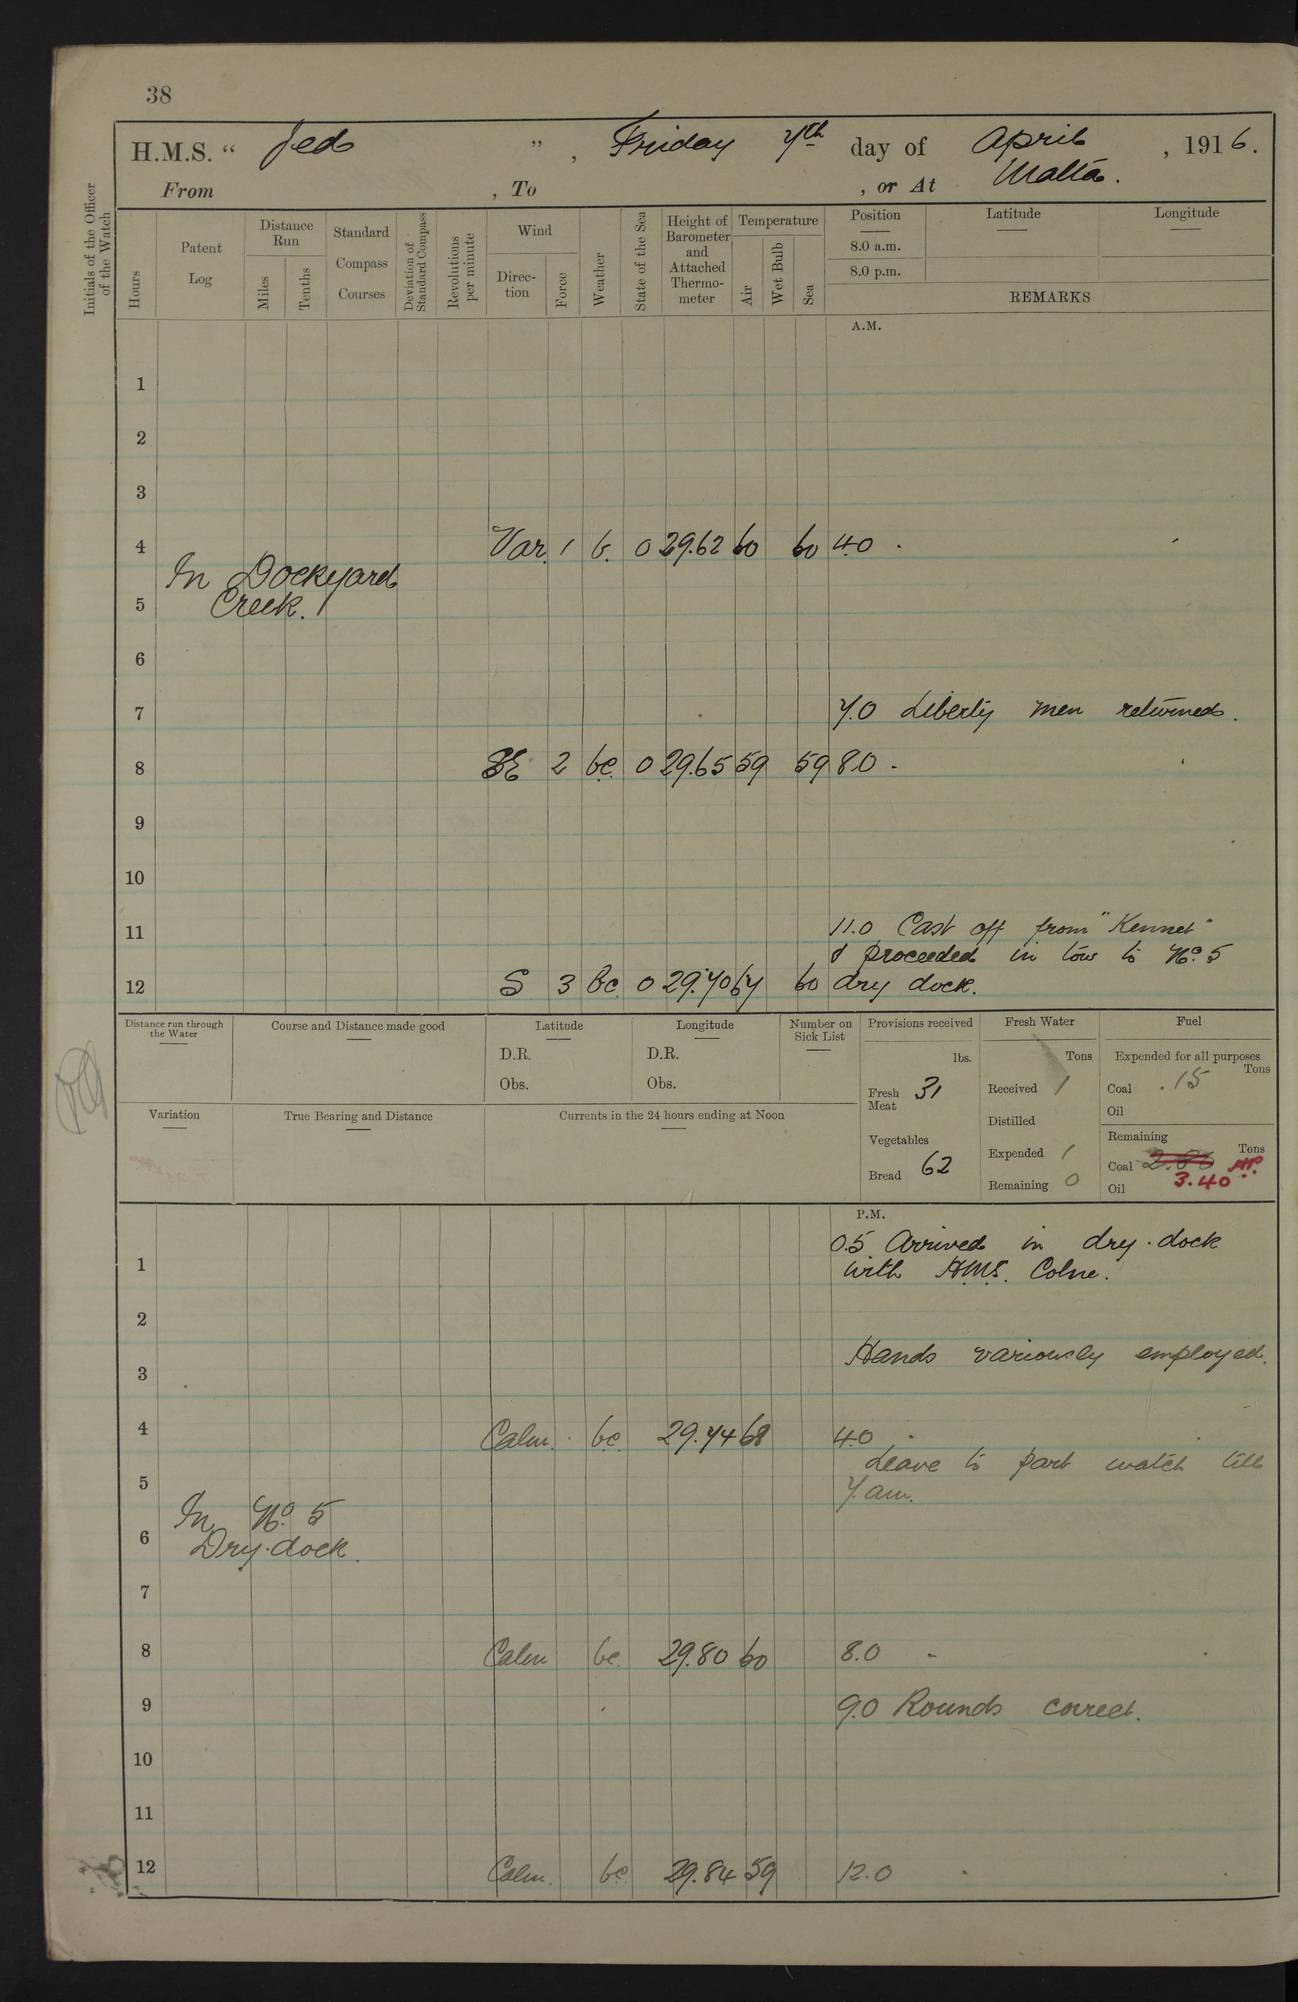 38
H.M.S. “ Jed ” , Friday 7th day of April , 1916.
From , To , or At Malta.
Initials of the Officer of the Watch
Hours
Patent Log
Distance Run
Miles
Tenths
Standard Compass Courses
Deviation of Standard Compass
Revolutions per minute
Wind
Direction
Force
Weather
State of the Sea
Height of Barometer and Attached Thermometer
Temperature
Air
Wet Bulb
Sea
Position
8.0 a.m.
8.0 p.m.
Latitude
Longitude
REMARKS
A.M.
1
2
3
4 Var. 1 b. 0 29.62 60 60 4.0 .
In Dockyard
5 Creek.
6
7 7.0 Liberty men returned.
8 SE 2 bc. 0 29.65 59 59 8.0 .
9
10
11 11.0 Cast off from "Kennet"
& proceeded in tow to No. 5
12 S 3 bc. 0 29.70 67 60 dry dock.
Distance run through the Water
Course and Distance made good
Latitude
D.R.
Obs.
Longitude
D.R.
Obs.
Number on Sick List
Provisions received
lbs.
Fresh Meat 31
Vegetables
Bread 62
Fresh Water
Tons
Received 1
Distilled
Expended 1
Remaining 0
Fuel
Expended for all purposes
Tons
Coal .15
Oil
Remaining
Tons
Coal 2.80
3.40
Oil
Variation
True Bearing and Distance
Currents in the 24 hours ending at Noon
P.M.
0.5 Arrived in dry.dock
1 with H.M.S. Colne.
2
Hands variously employed.
3
4 Calm. bc. 29.74 68 4.0 .
Leave to part watch till
5 7.am.
In No. 5
6 Dry.dock.
7
8 Calm bc. 29.80 60 8.0 .
9 9.0 Rounds correct.
10
11
12 Calm. bc 29.84 59 12.0 .